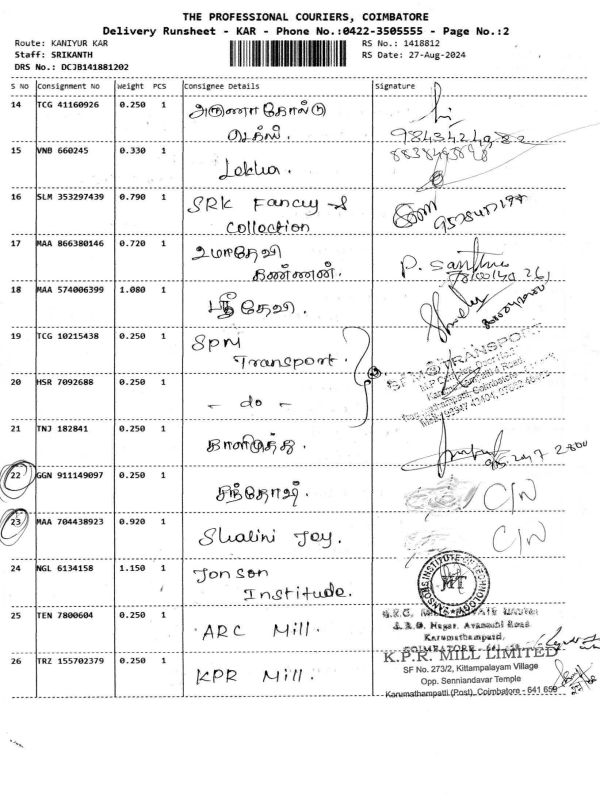 THE PROFESSIONAL COURIERS, COIMBATORE
Delivery Runsheet - KAR - Phone No.:0422-3505555 - Page No.:2
Route: KANIYUR KAR
RS No.: 1418812
Staff: SRIKANTH
RS Date: 27-Aug-2024
DRS No.: DCJB141881202
S No Consignment No Weight PCS Consignee Details Signature
14 TCG 41160926 0.250 1 அருணா கோல்டு
15 VNB 660245 0.330 1 Lekha.
16 SLM 353297439 0.790 1 SRK Fancy &
Collection
17 MAA 866380146 0.720 1 உமாதேவி
கண்ணன்.
P. Santhu
18 MAA 574006399 1.080 1 ஸ்ரீதேவி.
19 TCG 10215438 0.250 1 SPM
Transport.
SPM TRANSPORT
20 HSR 7092688 0.250 1 - do -
21 TNJ 182841 0.250 1 காளிமுத்து.
22 GGN 911149097 0.250 1 சந்தோஷ். C/N
23 MAA 704438923 0.920 1 Shalini Joy. C/N
24 NGL 6134158 1.150 1 Jonson
Institude.
25 TEN 7800604 0.250 1 ARC Mill.
Karumathampatti,
26 TRZ 155702379 0.250 1 KPR Mill.
K.P.R. MILL LIMITED
SF No. 273/2, Kittampalayam Village
Opp. Senniandavar Temple
Karumathampatti (Post), Coimbatore - 641 659